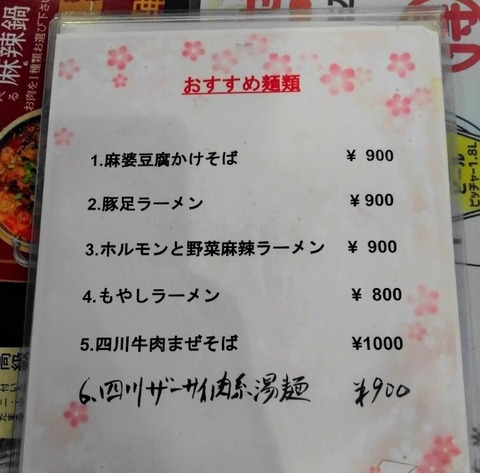 麻辣鍋
お肉を1種類お選び下さい
おすすめ麺類
1.麻婆豆腐かけそば ¥ 900
2.豚足ラーメン ¥900
3.ホルモンと野菜麻辣ラーメン ¥ 900
4.もやしラーメン ¥ 800
5.四川牛肉まぜそば ¥1000
6.四川ザーサイ肉糸湯麺 ¥900
ピッチャー1.8L